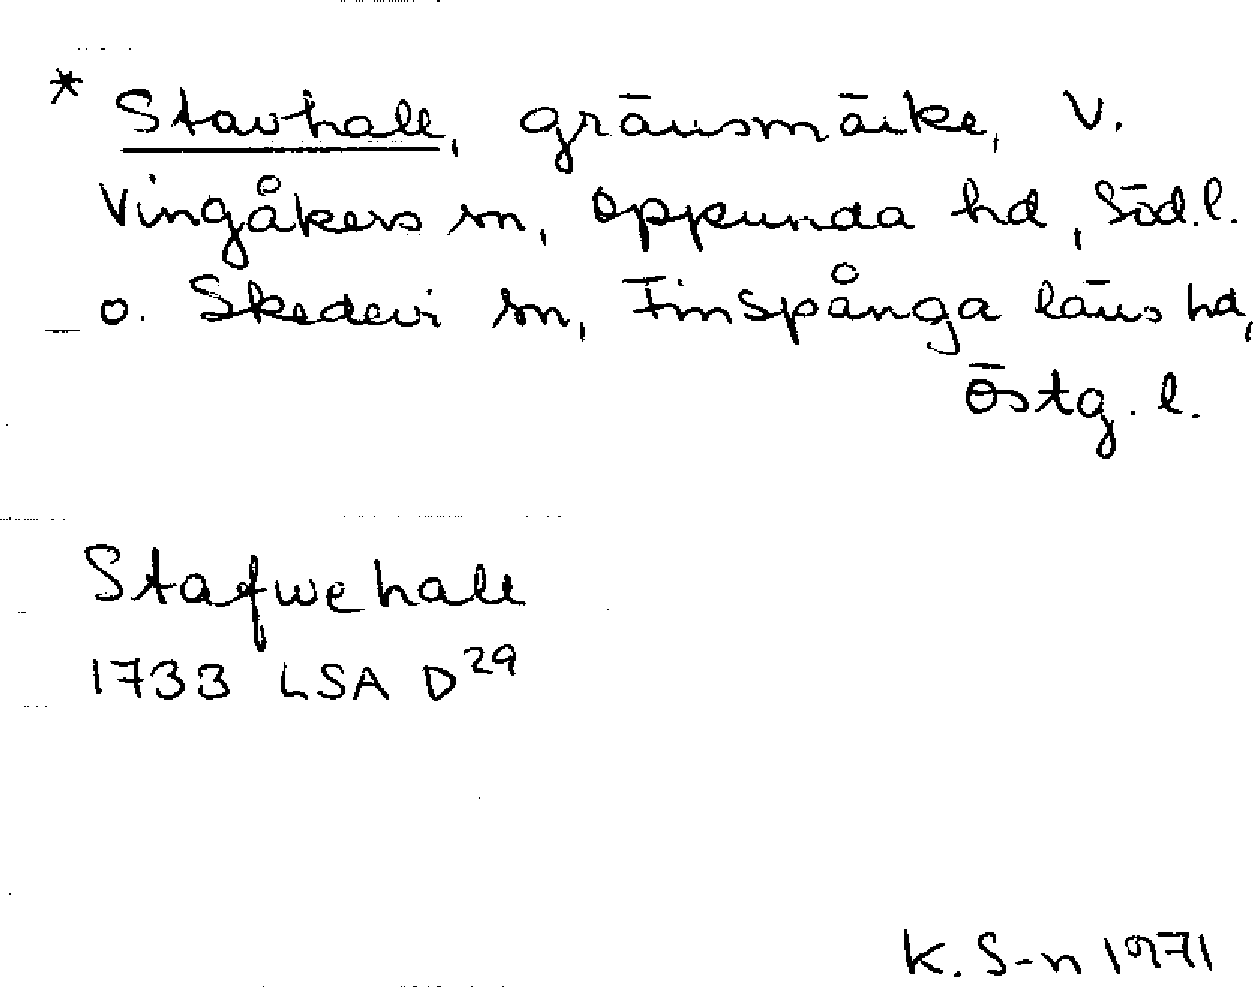 * Stavhall, gränsmärke, V.
Vingåkers sn, Oppunda hd, Söd.l.
o. Skedevi sn, Finspånga läns hd,
Östg. l.
Stafwehall
1733 LSA D29
K. S-n 1971